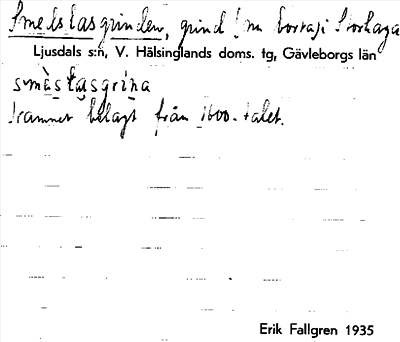 Smedstasgrinden, grind
Ljusdals s:n, V. Hälsinglands doms. tg, Gävleborgs län
smè̱stasgrína
belagt från 1600-talet.
Erik Fallgren 1935